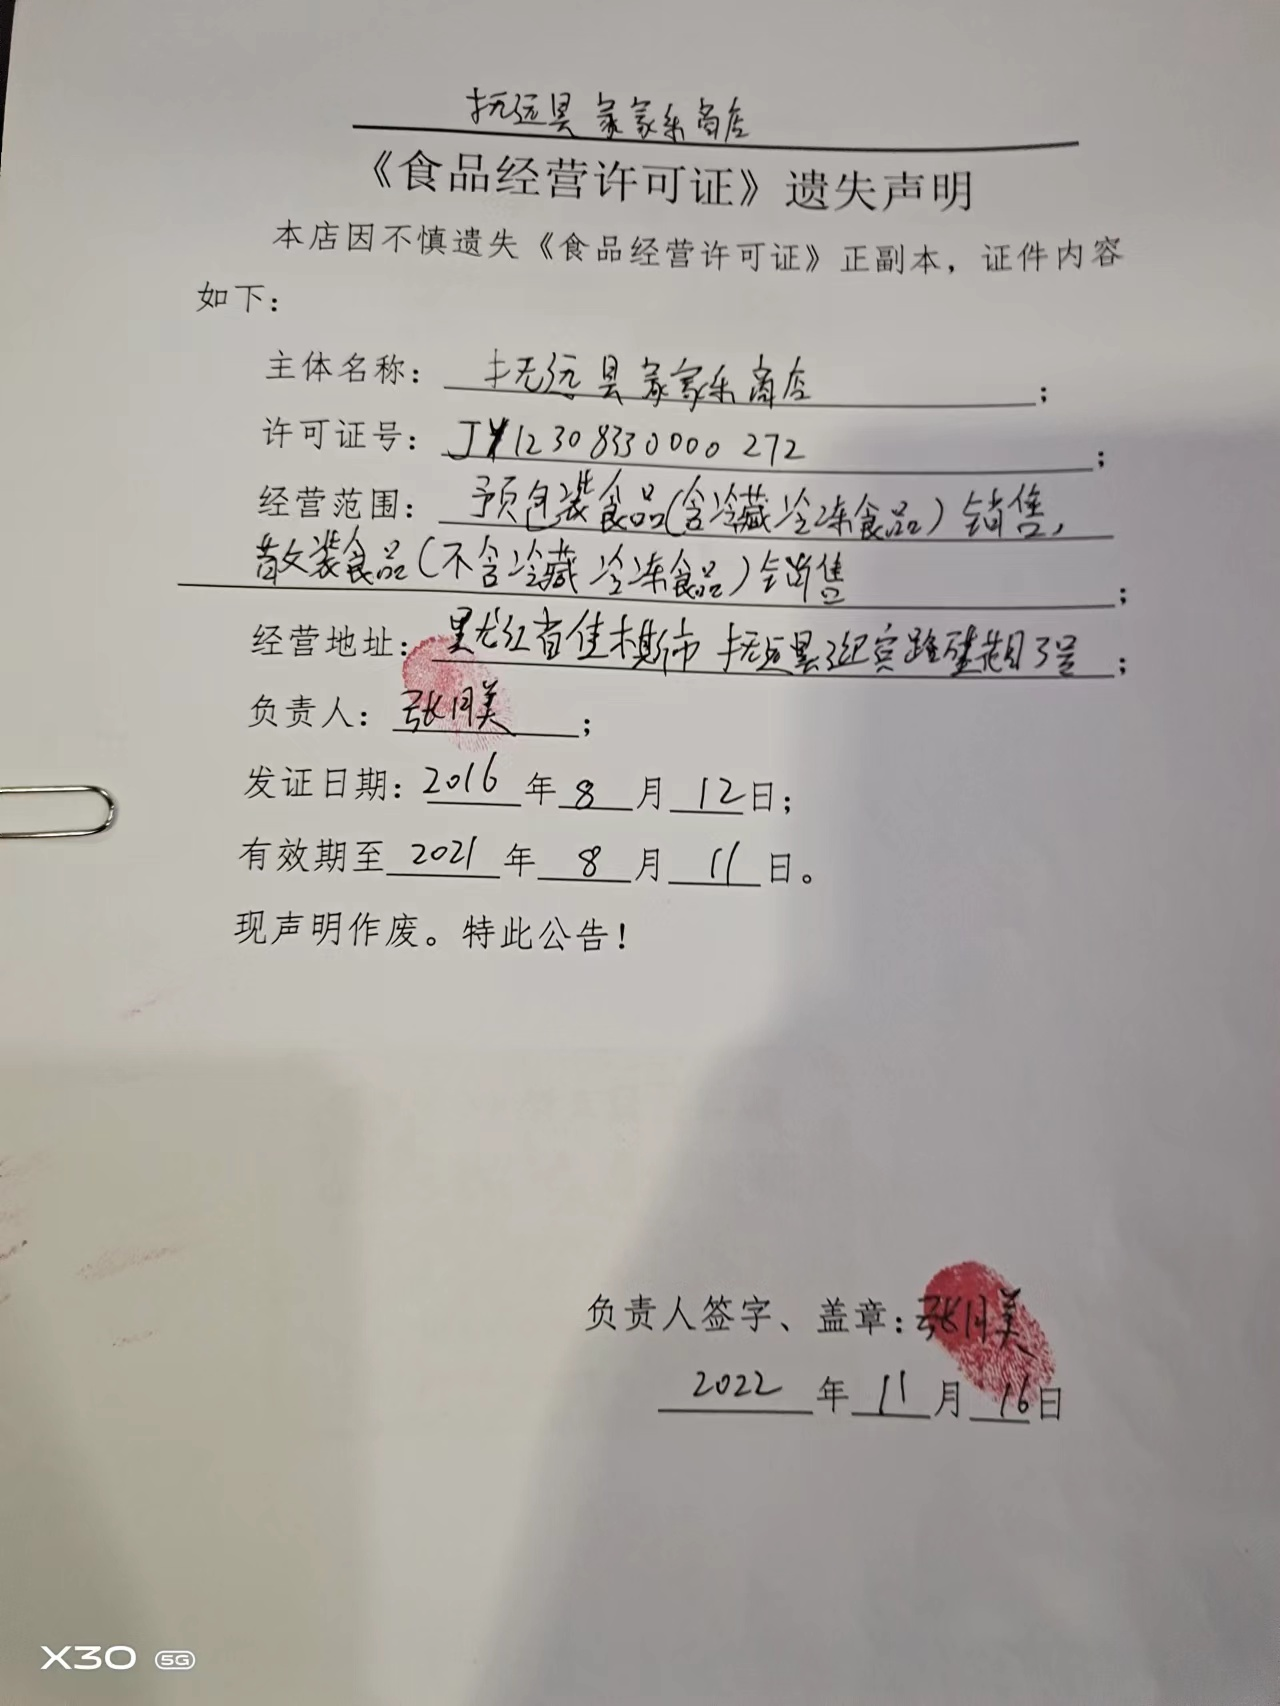 抚远县家家乐商店
《食品经营许可证》遗失声明
本店因不慎遗失《食品经营许可证》正副本，证件内容
如下：
主体名称：抚远县家家乐商店；
许可证号：JY12308330000272；
经营范围：预包装食品（含冷藏冷冻食品）销售，
散装食品（不含冷藏冷冻食品）销售；
经营地址：黑龙江省佳木斯市抚远县迎宾路3号；
负责人：张月美；
发证日期：2016年8月12日；
有效期至2021年8月11日。
现声明作废。特此公告！
负责人签字、盖章：张月美
2022年11月16日
X30 5G